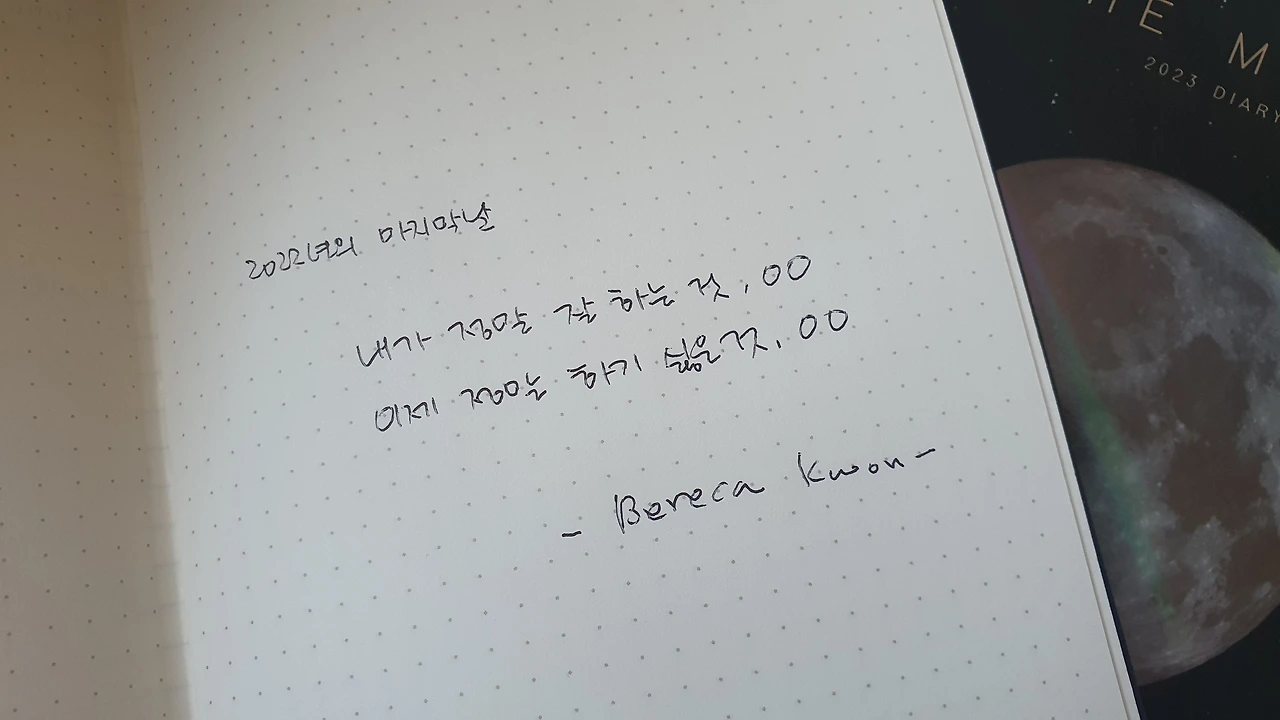 2022년의 마지막날
내가 정말 잘 하는 것, OO
이제 정말 하기 싫은 것, OO
- Bereca Kwon -
HE M
2023 DIARY